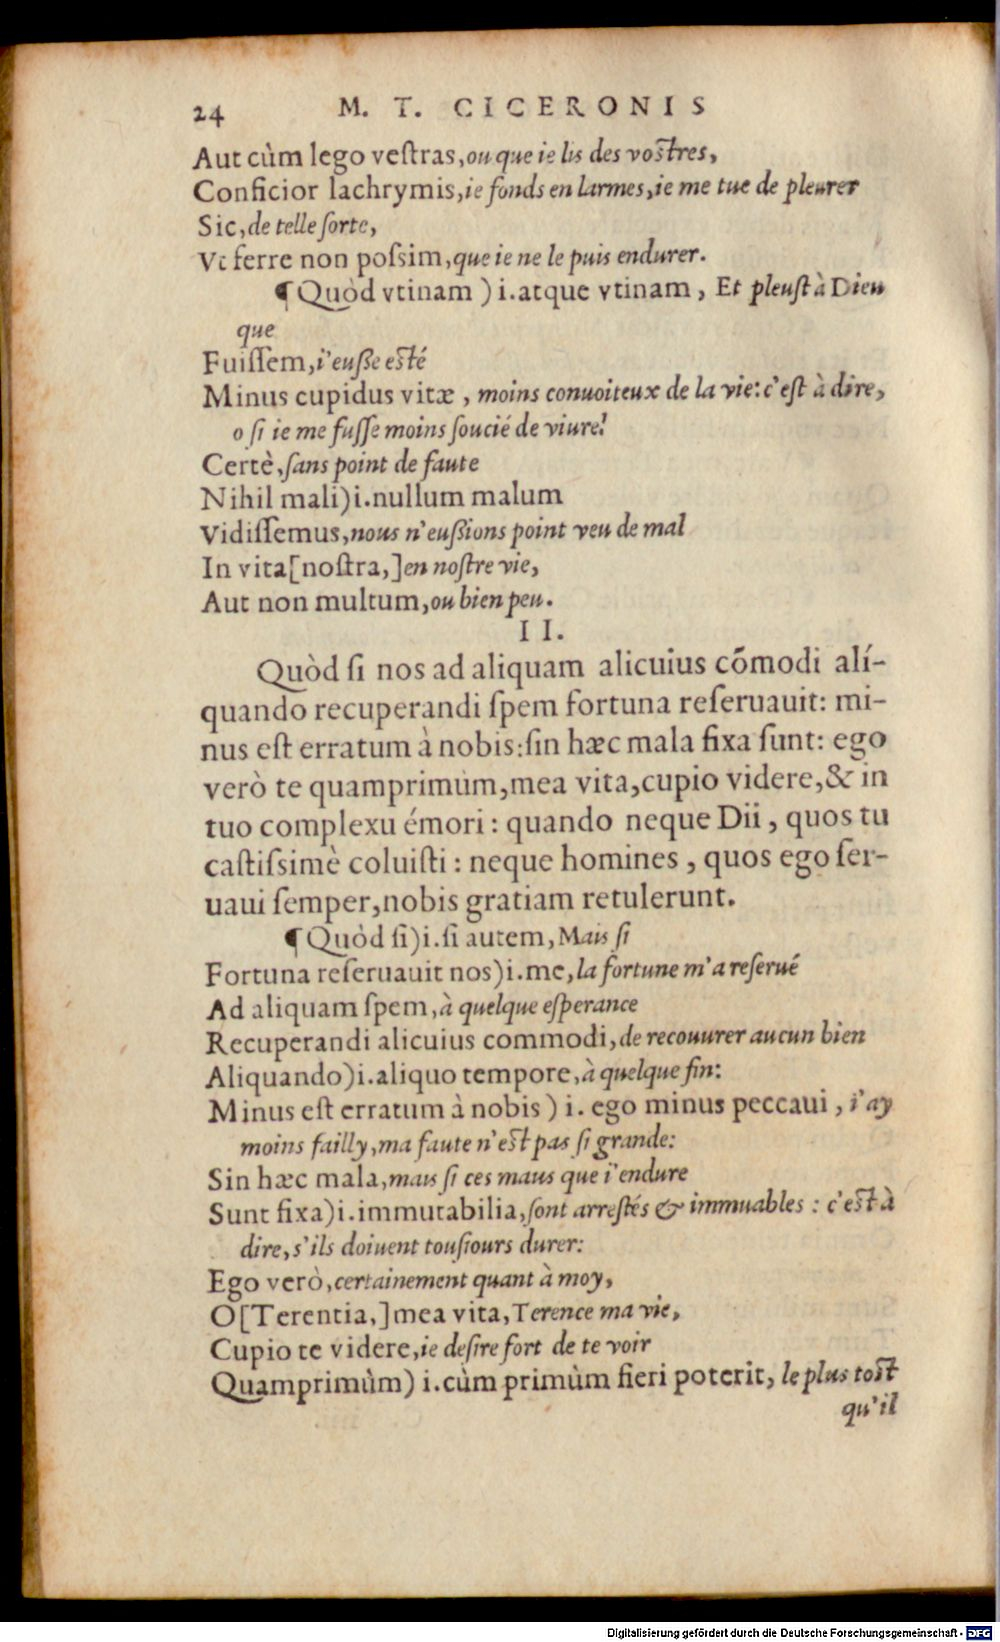 24 M. T. CICERONIS
Aut cùm lego veſtras, ou que ie lis des voſtres,
Conficior lachrymis, ie fonds en larmes, ie me tue de pleurer
Sic, de telle ſorte,
Vt ferre non poſsim, que ie ne le puis endurer.
¶ Quòd vtinam ) i. atque vtinam, Et pleuſt à Dieu
que
Fuiſſem, i'euße eſté
Minus cupidus vitæ, moins conuoiteux de la vie: c'eſt à dire,
o ſi ie me fuſſe moins ſoucié de viure!
Certè, ſans point de faute
Nihil mali) i. nullum malum
Vidiſſemus, nous n'eußions point veu de mal
In vita [noſtra,] en noſtre vie,
Aut non multum, ou bien peu.
II.
Quòd ſi nos ad aliquam alicuius cõmodi alí-
quando recuperandi ſpem fortuna reſeruauit: mi-
nus eſt erratum à nobis: ſin hæc mala fixa ſunt: ego
verò te quamprimùm, mea vita, cupio videre, & in
tuo complexu émori: quando neque Dii, quos tu
caſtiſsimè coluiſti: neque homines, quos ego ſer-
uaui ſemper, nobis gratiam retulerunt.
¶ Quòd ſi) i. ſi autem, Mais ſi
Fortuna reſeruauit nos) i. me, la fortune m'a reſerué
Ad aliquam ſpem, à quelque eſperance
Recuperandi alicuius commodi, de recouurer aucun bien
Aliquando) i. aliquo tempore, à quelque fin:
Minus eſt erratum à nobis ) i. ego minus peccaui, i'ay
moins failly, ma faute n'eſt pas ſi grande:
Sin hæc mala, mais ſi ces maus que i'endure
Sunt fixa) i. immutabilia, ſont arreſtés & immuables : c'eſt à
dire, s'ils doiuent touſiours durer:
Ego verò, certainement quant à moy,
O [Terentia,] mea vita, Terence ma vie,
Cupio te videre, ie deſire fort de te voir
Quamprimùm) i. cùm primùm fieri poterit, le plus toſt
qu'il
Digitalisierung gefördert durch die Deutsche Forschungsgemeinschaft - DFG